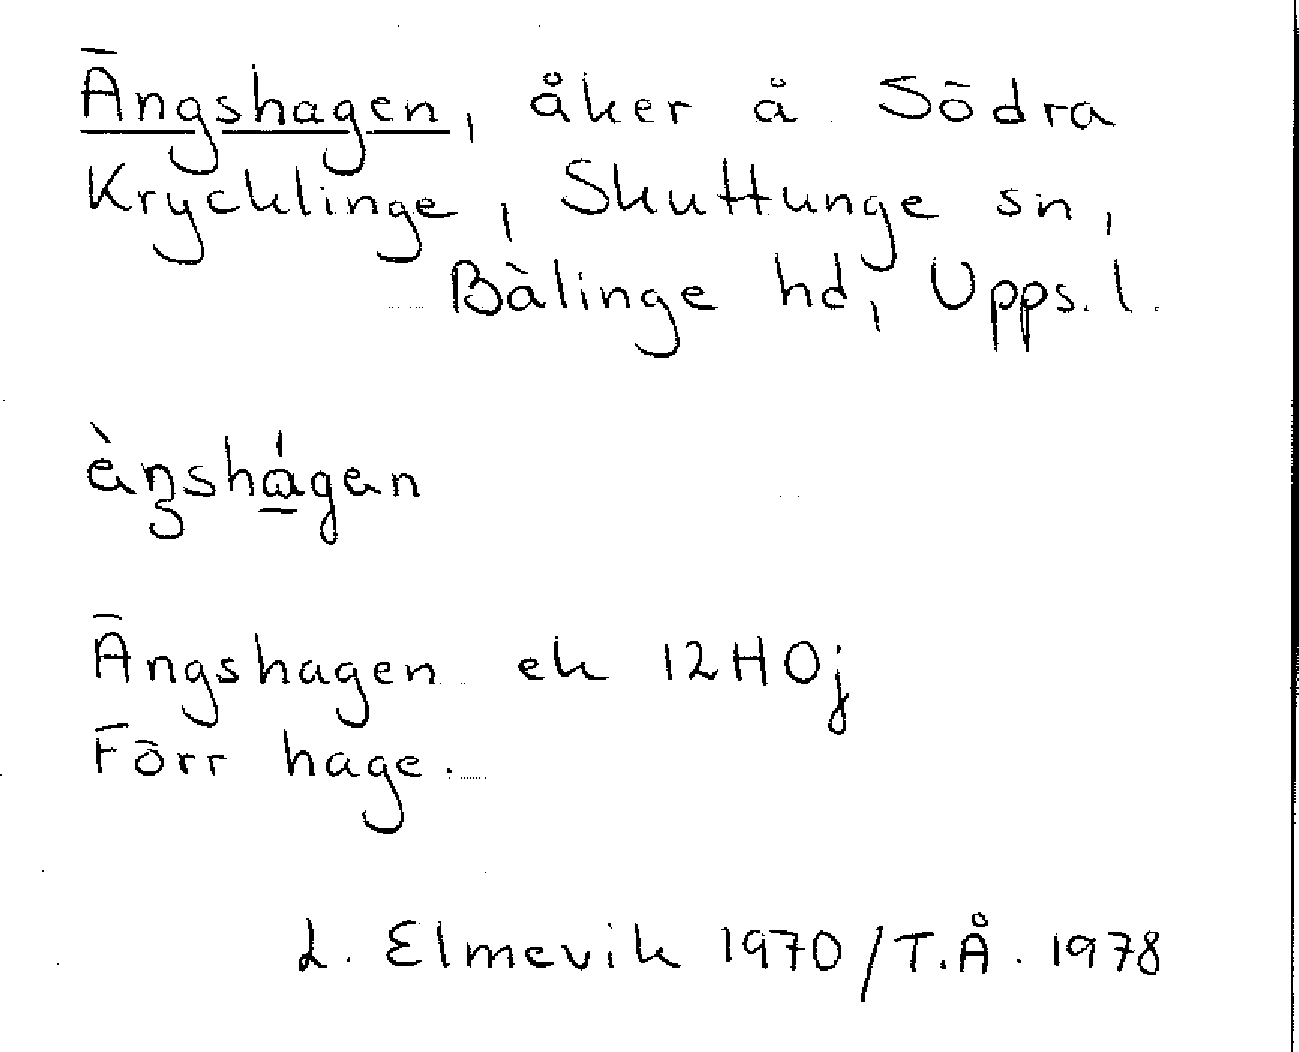 Ängshagen, åker å Södra
Krycklinge, Skuttunge sn,
Bälinge hd, Upps. l.
Ängshagen ek 12HOj
Förr hage.
L. Elmevik 1970/T.Å. 1978